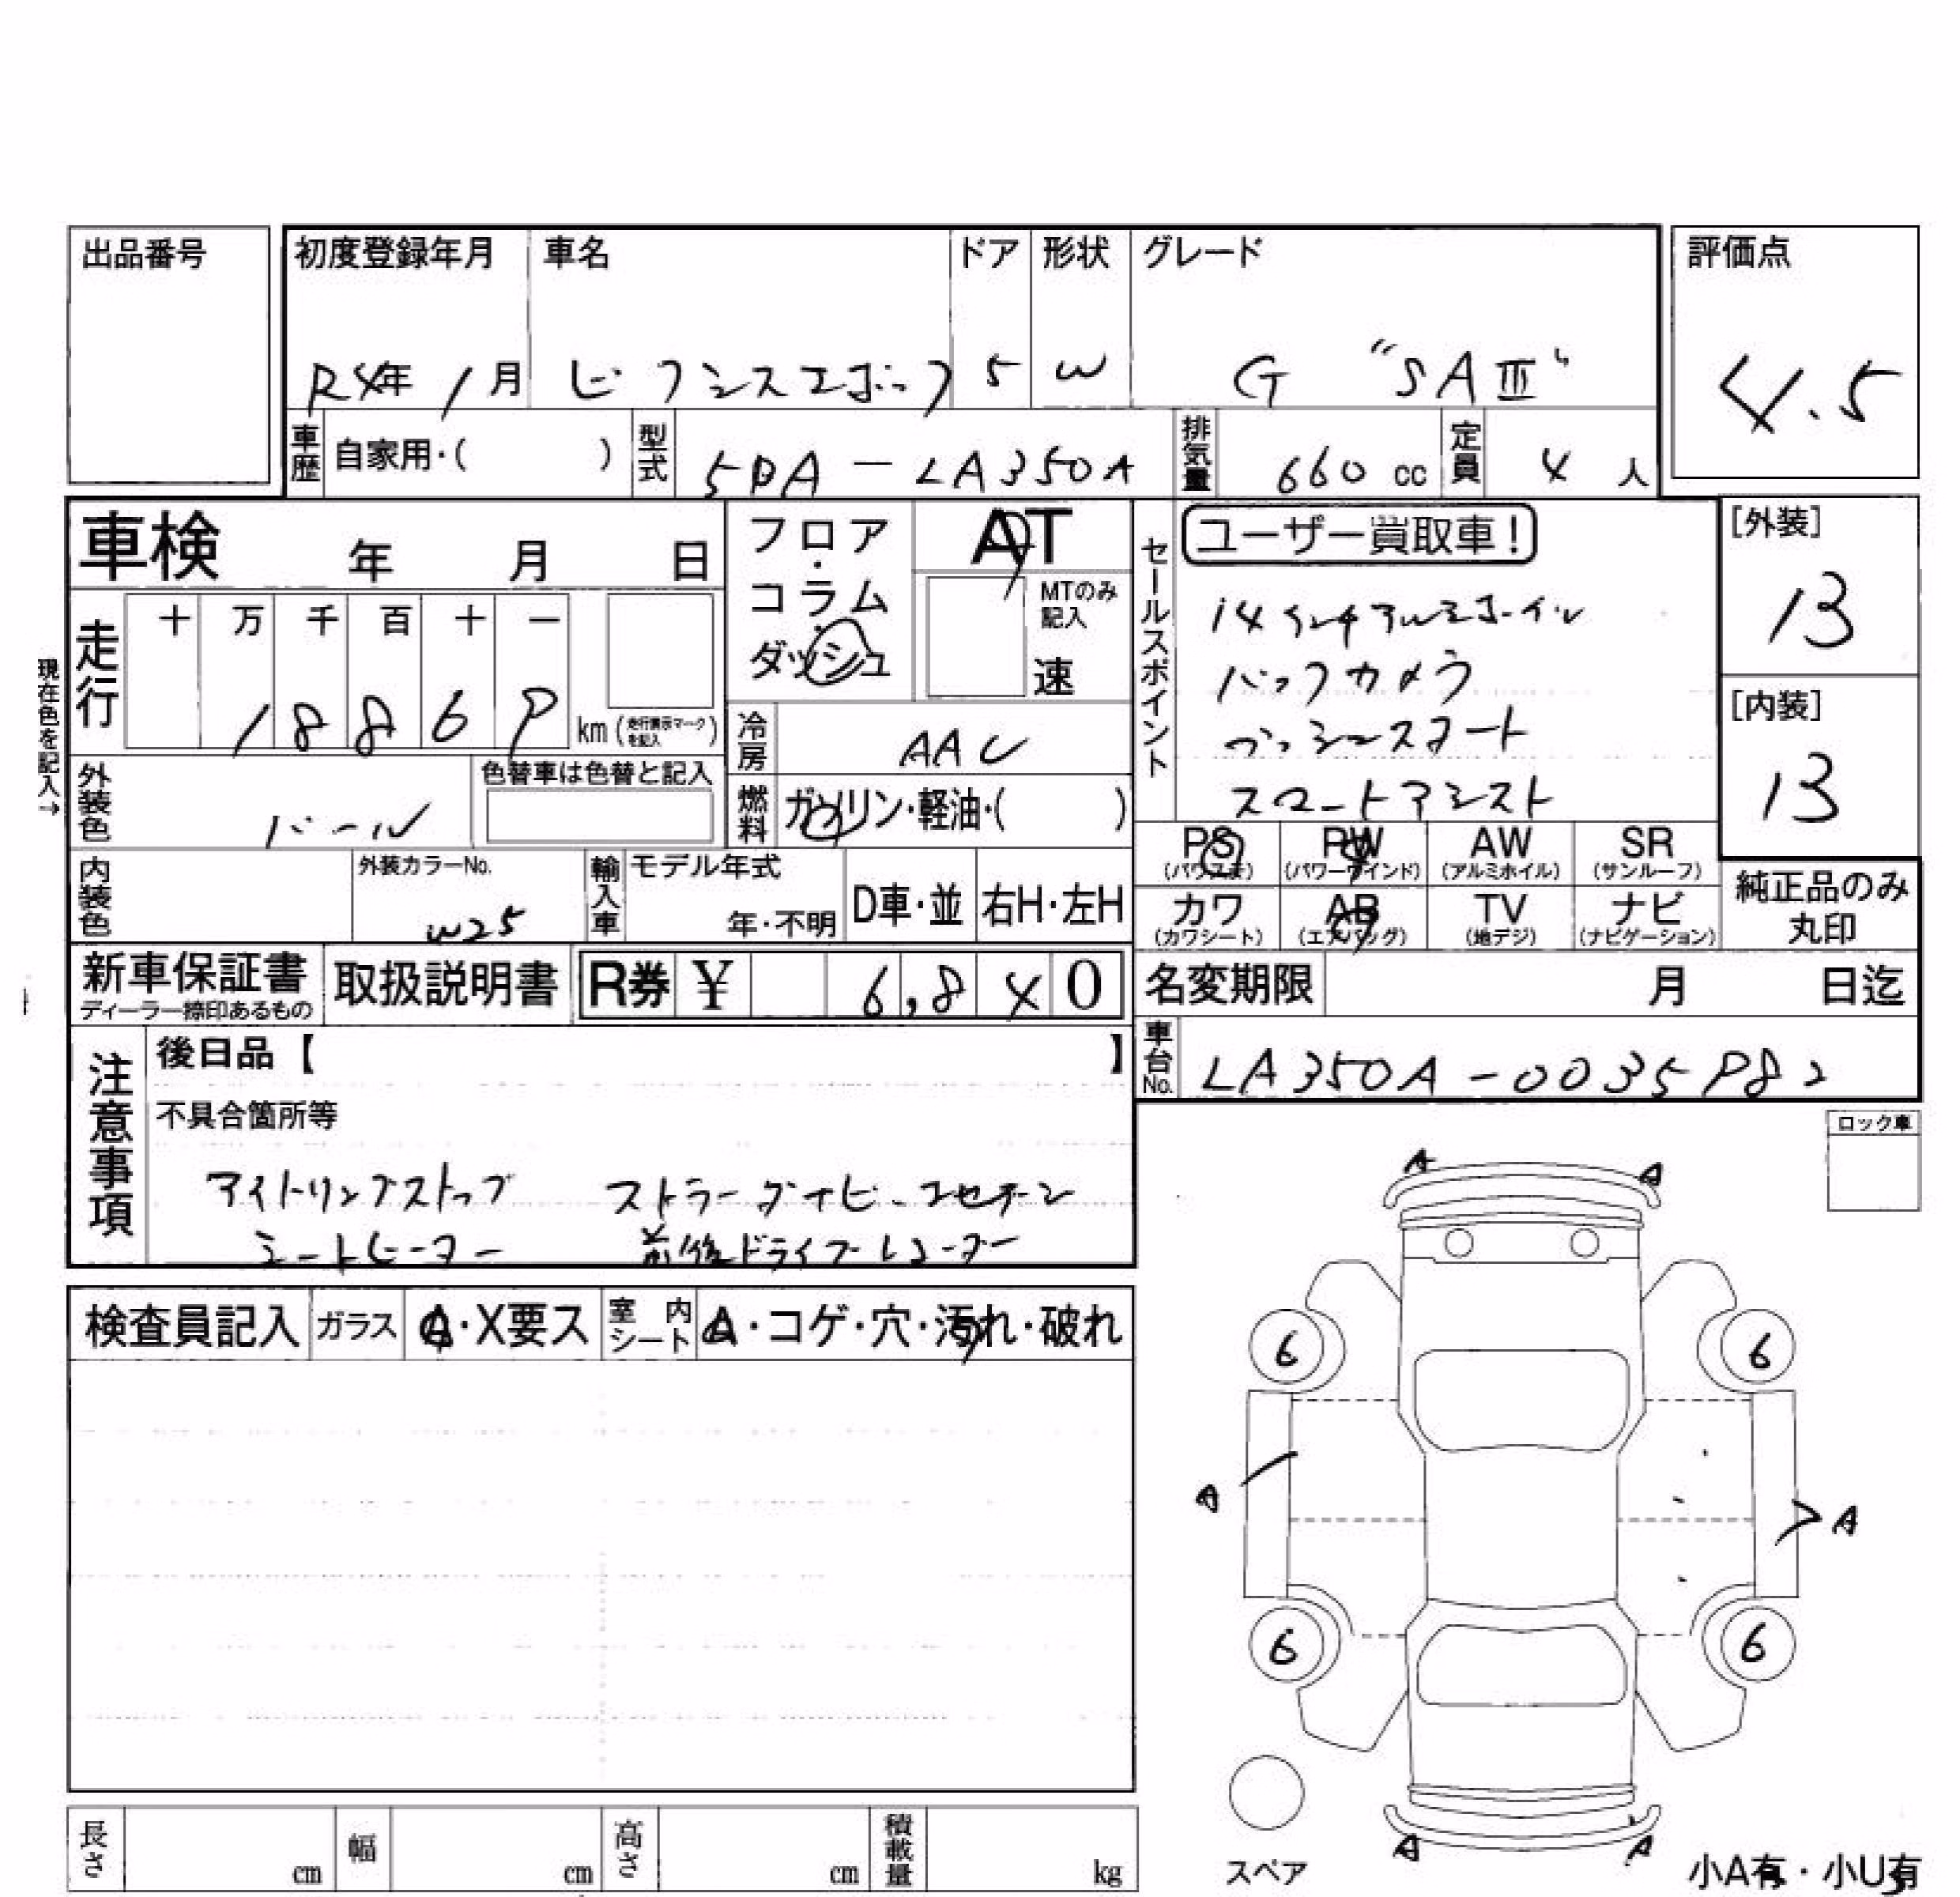 出品番号
初度登録年月 車名 ドア 形状 グレード 評価点
R4年 1月 ピクシスエポック 5 W G "SAⅢ" 4.5
車歴 自家用・( ) 型式 5BA-LA350A 排気量 660 cc 定員 4 人
車検 年 月 日
フロア・コラム・ダッシュ
AT
MTのみ記入
速
セールスポイント
ユーザー買取車!
14インチアルミホイル
バックカメラ
プッシュスタート
スマートアシスト
[外装]
13
[内装]
13
現在色を記入→
走行 十 万 千 百 十 一
18869 km (走行表示マークを記入)
冷房 AAC
外装色 パール
色替車は色替と記入
燃料 ガソリン・軽油・( )
PS (パワステ) PW (パワーウインド) AW (アルミホイル) SR (サンルーフ)
カワ (カワシート) AB (エアバッグ) TV (地デジ) ナビ (ナビゲーション)
純正品のみ
丸印
内装色
外装カラーNo.
W25
輸入車 モデル年式
年・不明
D車・並 右H・左H
新車保証書
ディーラー捺印あるもの
取扱説明書
R券 ¥ 6,840
名変期限 月 日迄
車台No. LA350A-0035982
注意事項
後日品【 】
不具合箇所等
アイドリングストップ
シートヒーター 前後ドライブレコーダー
ロック車
検査員記入 ガラス A・X要ス 室内シート A・コゲ・穴・汚れ・破れ
A A
6 6
A A
6 6
A A
スペア
小A有・小U有
長さ cm 幅 cm 高さ cm 積載量 kg